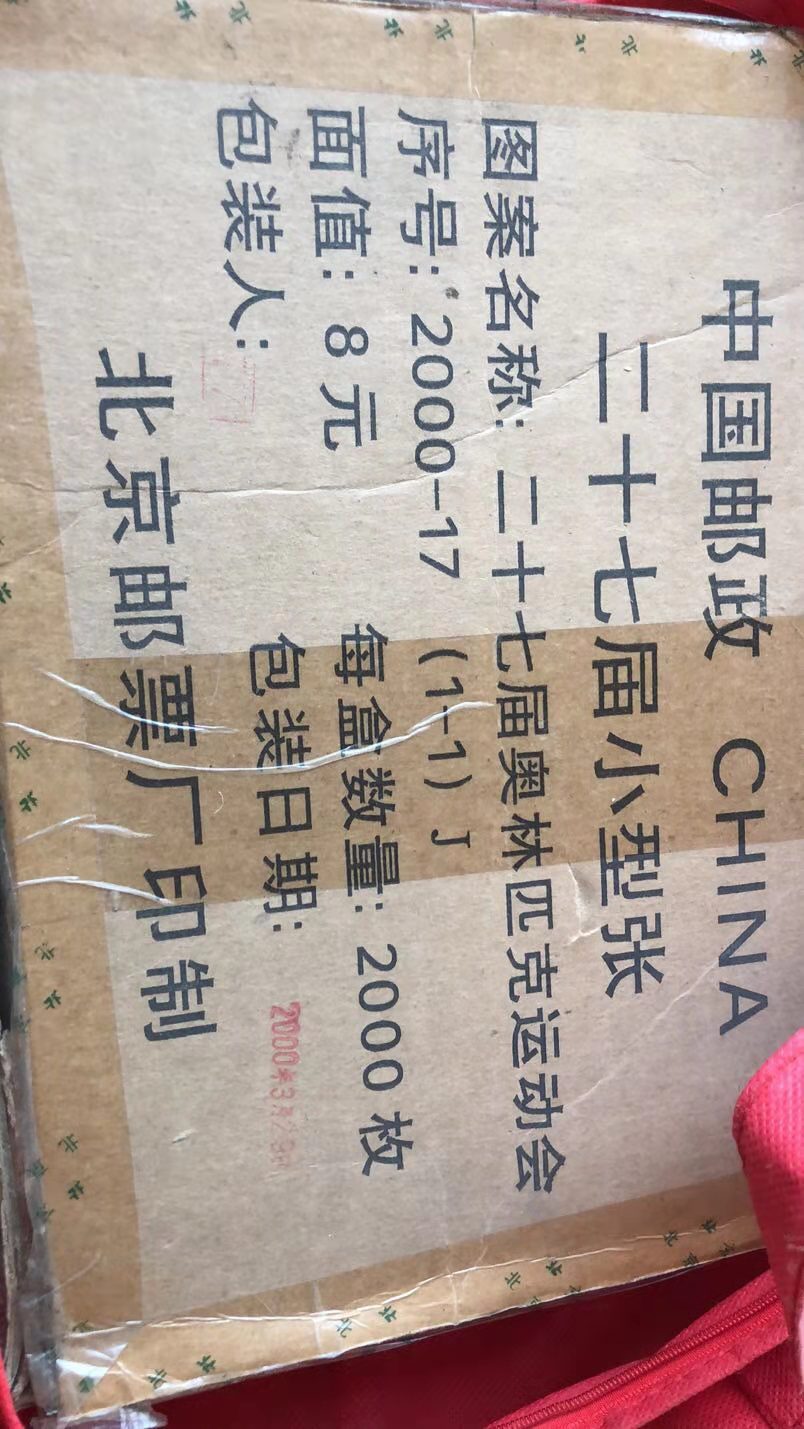 中国邮政 CHINA
二十七届小型张
图案名称: 二十七届奥林匹克运动会
序号: 2000-17 (1-1) J
面值: 8元 每盒数量: 2000枚
包装人: 包装日期: 2000年3月
北京邮票厂印制